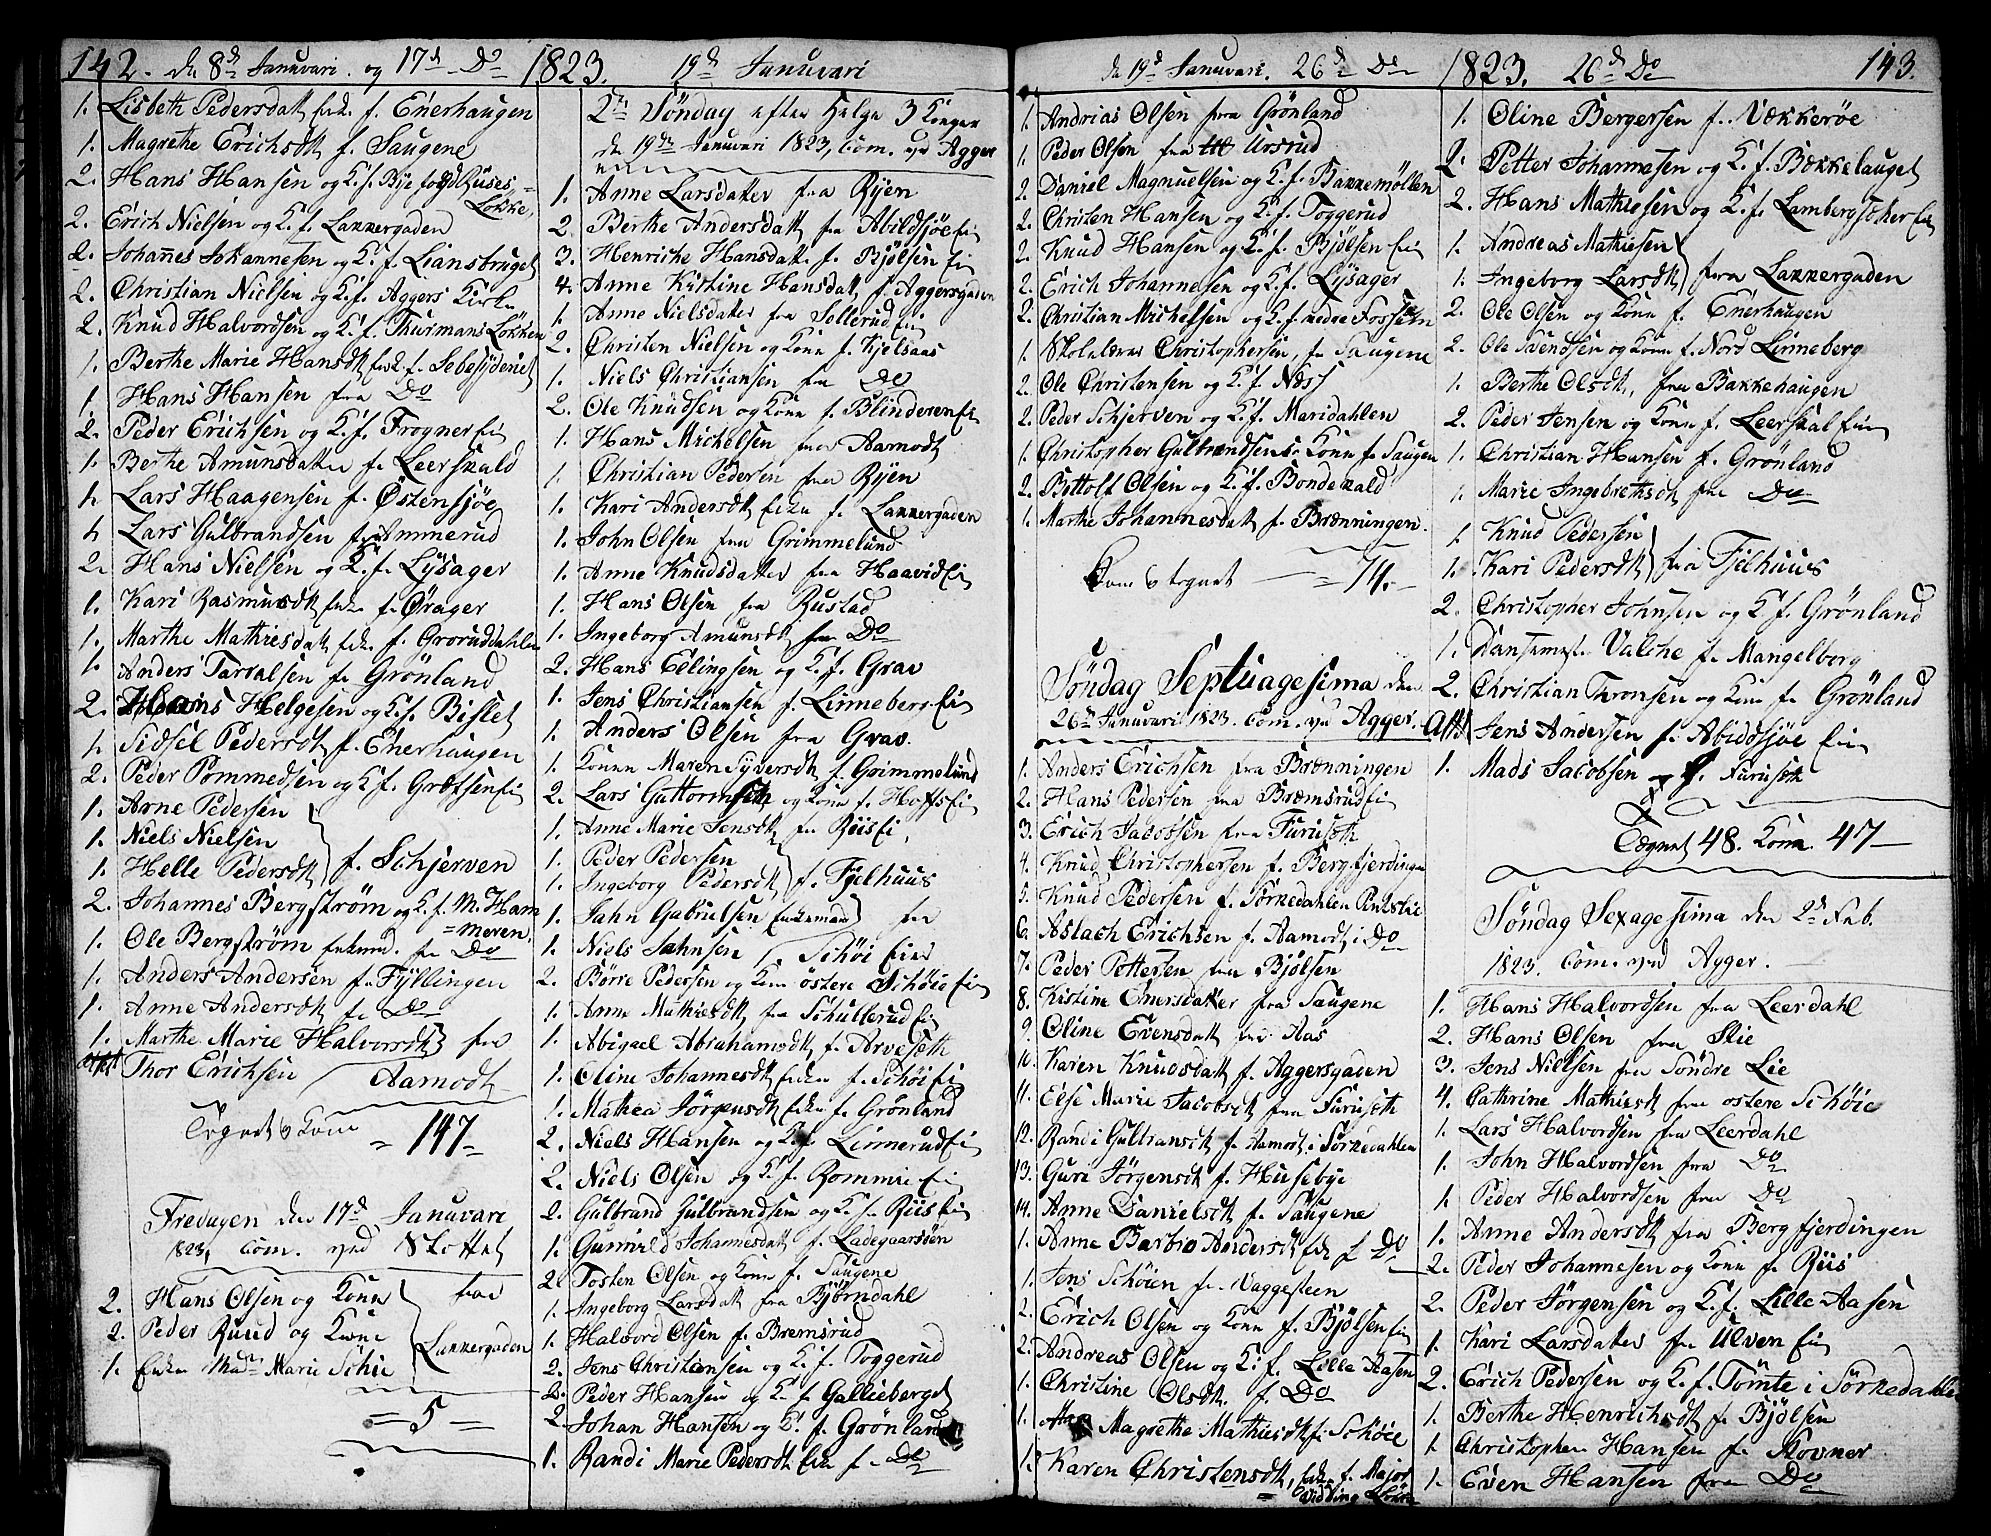 142. den 8de Januvari og 17d Do 1823. 19d Januvari
1. Lisbeth Pedersdatt f. Enerhaugen
1. Magrethe Erichsdt f. Saugene
2. Hans Hansen og K. f. Bye Ruses=
Løkke,
2. Erich Nielsen og K. f. Lakkergaden
2. Johannes Johannesen og K. f. Liansbruget
2. Christian Nielsen og K. f. Aggers Kirke
2. Knud Halvordsen og K. f. Thurmans Løkken
1. Berthe Marie Hansdt f. Sebesyderiet
1. Hans Hansen fra Do
2. Peder Erichsen og K. f. Frogner Ei
1. Berthe Amunsdatter f. Leerskald
1. Lars Haagensen f. Østensjøe
1. Lars Gulbrandsen fra Ammerud
2. Hans Nielsen og K. f. Lysager
1. Kari Rasmusdt Enke f. Ørager
1. Marthe Mathiesdatt Enke f. Groruddahlen
1. Anders Tarvalsen f. Grönland
2. Helgesen og K. f. Bislet
1. Sidsel Pedersdt f. Enerhaugen
2. Peder Pommedsen og K. f. Grefsen Ei
1. Arne Pedersen
1. Niels Nielsen
1. Helle Pedersdt f. Schjerven
2. Johannes Bergstrøm og K. f. M. Ham
=meren,
1. Ole Bergstrøm Enkem. fr Do
1. Anders Andersen f. Fyllingen
1. Anne Andersdt fr Do
1. Marthe Marie Halvorsdt fra
Thor Erichsen Aamodt
Tegnet & Kom = 147=
Fredagen den 17d Januvari
1823, Com. ved Slottet
2. Hans Olsen og Kone fra
2. Peder Ruud og Kone Lakkergaden
1. Enke Marie Schie
= 5 =
2den Søndag efter Helge 3 Konger
den 19de Januvari 1823, Com. ved Agger
1. Anne Larsdatter fra Ryen
2. Berthe Andersdatt fra Abildsjøe Ei
3. Henriche Hansdatt f. Bjölsen Ei
4. Anne Kirstine Hansdatt f. Aggersgaden
1. Anne Nielsdatter fra Sollerud Ei
2. Christen Nielsen og Kone f. Kjelsaas
1. Niels Christiansen fra Do
2. Ole Knudsen og Kone f. Blinderen Ei
1. Hans Michelsen fra Aamodt
1. Christian Pedersen fra Ryen
1. Kari Andersdt Enke f. Lakkergaden
1. John Olsen fra Grimmelund
1. Anne Knudsdatter fra Haavid Ei
1. Hans Olsen fra Rustad
1. Ingeborg Amunsdt fra Do
2. Hans Ellingsen og K. f. Grav
1. Jens Christiansen f. Linneberg Ei
1. Anders Olsen fra Grav.
1. Konen Maren Syversdt f. Grimmelund
2. Lars Guttormsen og Kone f. Hoffs Ei
1. Anne Marie Jensdt fr Riis Ei,
1. Peder Pedersen
1. Ingeborg Pedersdt f. Fjelhuus
1. Jahn Gabrielsen Enkemand fra
1. Niels Jahnsen Schöi Eier
2. Börre Pedersen og Kone östere Schöie Ei
1. Anne Mathiesdt fra Schullerud Ei
1. Abigael Abrahamsdt f. Arveseth
1. Oline Johannesdt Enke f. Schöi Ei
1. Mathea Jörgensdt Enke f. Grönland
2. Niels Hansen og K. f. Linnerud Ei
2. Niels Olsen og K. f. Rommen Ei
2. Gulbrand Gulbrandsen og K. f. Riis Ei
1. Gunnild Johannesdatt f. Ladegaarsöen
2. Tosten Olsen og Kone f. Saugene
1. Ingeborg Larsdatt fra Bjørndahl
1. Halvord Olsen f. Bremsrud
2. Jens Christiansen og K. f. Toggerud
2. Peder Hansen og K. f. Gallieberget
2. Johan Hansen og K. f. Grönland
1. Randi Marie Pedersdt fra f. Do
de 19d Januvari. 26de Do 1823. 26de Do 143.
1. Andrias Olsen fra Grönland
1. Peder Olsen fra Ursrud
2. Daniel Magnuelsen og K. f. Bakkemøllen
2. Christen Hansen og K. f. Toggerud
2. Knud Hansen og K. f. Bjölsen Ei
2. Erich Johannesen og K. f. Lysager
2. Christian Michelsen og K. f. nedre Fossum
1. Skolelærer Christophersen, fr Saugene
2. Ole Christensen og K. f. Næss
2. Peder Schjerven og K. f. Maridahlen
1. Christopher Gulbrandsens Kone fr Saugen
2. Bottolf Olsen og K. f. Bondekald
1. Marthe Johannesdatt f. Brænningen.
Kom & tegnet = 74.
Søndag Septuagesima den
26de Januvari 1823. Com. ved Agger.
1. Anders Erichsen fra Brænningen
2. Hans Pedersen fra Bræmsrud Ei
3. Erich Jacobsen fra Furuseth
4. Knud Christophersen f. Bergfjerdingen
5. Knud Pedersen f. Sörkedahlen
6. Aslach Erichsen f. Aamodt i Do
7. Peder Pettersen fra Bjölsen
8. Kistine Enersdatter fra Saugene
9. Oline Evensdatt fra Aas
10. Karen Knudsdatt f. Aggersgaden
11. Else Marie Jacobsdt fra Furuseth
12. Randi Gulbransdt f. Aamodt i Sörkedahlen
13. Guri Jörgensdt f. Husebye
14. Anne Danielsdt f. Saugene
1. Anne Barbro Andersdt f. Do
1. Jens Schöien fr Vaggesteen
2. Erich Olsen og Kone f. Bjölsen Ei
2. Andreas Olsen og K. f. Lille Aasen
1. Christine Olsdt. f. Do
1. Magrethe Mathiesdt f. Schöie
1. Karen Christensdt, Enke f. Major
1. Oline Bergersen f. Vækkerøe
2. Petter Johannesen og K. f. Bækkelauget
2. Hans Mathiesen og K. f. Lambergsæter Ei
1. Andreas Mathiesen
1. Ingeborg Larsdt fra Lakkergaden
2. Ole Olsen og Kone f. Enerhaugen
2. Ole Svendsen og Kone f. Nord Linneberg
1. Berthe Olsdt, fra Bakkehaugen
2. Peder Jensen og Kone f. Leerskal Ei
1. Christian Hansen f. Grönland
1. Marie Ingebrethsdt fra Do
1. Knud Pedersen
1. Kari Pedersdt fra Fjelhuus
2. Christopher Johnsen og K. f. Grönland
1. Dansemest. Valche f. Mangelborg
2. Christian Thronsen og Kone fr Grönland
Jens Andersen f. Abildsjøe Ei
1. Mads Jacobsen f. Furuseth
Tegnet 48. Kom. 47
Søndag Sexagesima den 2d Feb.
1823. Com. ved Agger.
1. Hans Halvordsen fra Leerdahl
2. Hans Olsen fra Slie
3. Jens Nielsen fra Søndre Lie
4. Cathrine Mathiesdt fra östere Schöie
1. Lars Halvordsen fra Leerdahl
1. John Halvordsen fra Do
1. Peder Halvordsen fra Do
1. Anne Andersdt fra Bergfjerdingen
2. Peder Johannesen og Kone f. Riis
2. Peder Jörgensen og K. f. Lille Aasen
1. Kari Larsdatter fra Ulven Ei
2. Erich Pedersen og K. f. Tömte i Sörkedahlen
1. Berthe Henrichsdt f. Bjölsen
1. Christopher Hansen f. Hovner
1. Even Hansen fra Do